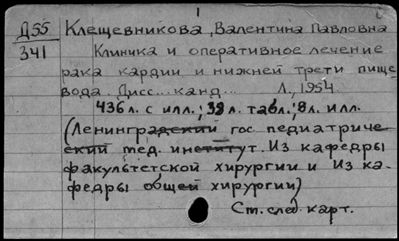 Д55 Клещевникова, Валентина Павловна
341 Клиника и оперативное лечение
рака кардии и нижней трети пище-
вода. Дисс... канд... Л., 1954
436 л. с илл.; 38 л. табл.; 8 л. илл.
(Ленинградский гос педиатриче-
ский мед. институт. Из кафедры
факультетской хирургии и Из ка-
федры общей хирургии)
См. след. карт.